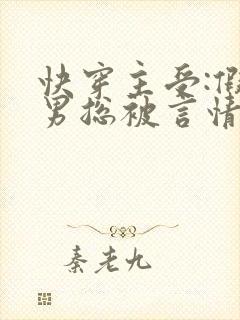 快穿主受:假
男捴被言情
秦老九